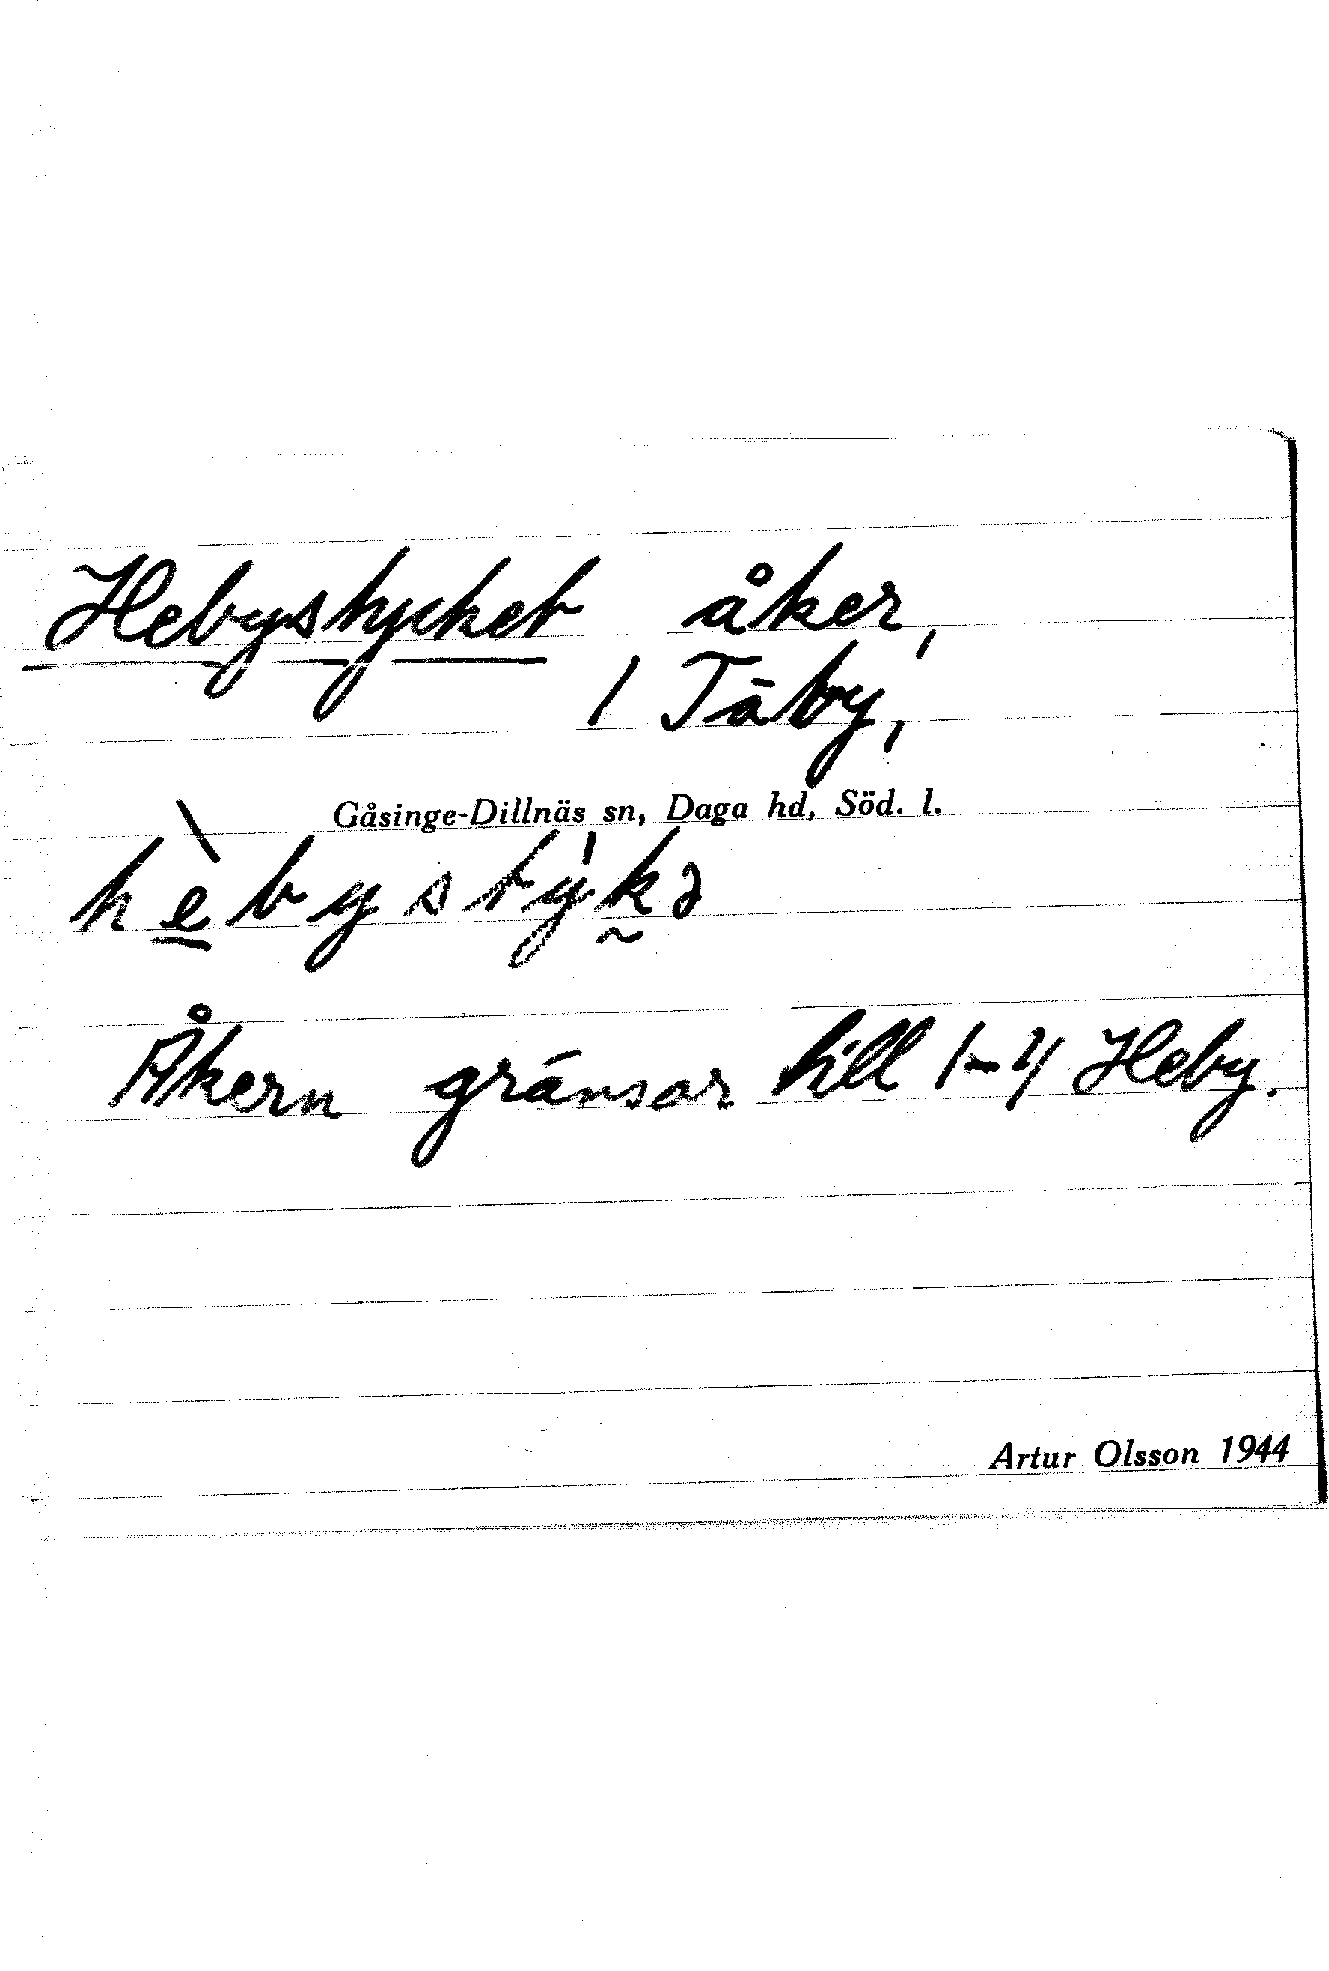 Hebystycket åker,
1 Täby,
Gåsinge-Dillnäs sn, Daga hd, Söd. l.
hèbystýkə
Åkern gränsar till 1-4 Heby.
Artur Olsson 1944